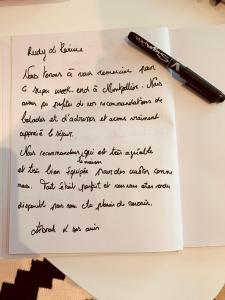 Rudy et Karine
Nous tenons à vous remercier pour
ce super week-end à Montpellier. Nous
avons pu profiter de vos recommandations de
balades et d'adresses et avons vraiment
apprécié le séjour.
Nous recommandons, qui est très agréable
la maison
et très bien équipée pour des cuistos comme
nous. Tout était parfait et vous vous êtes rendus
disponible pour nous. Au plaisir de revenir.
& ses amis